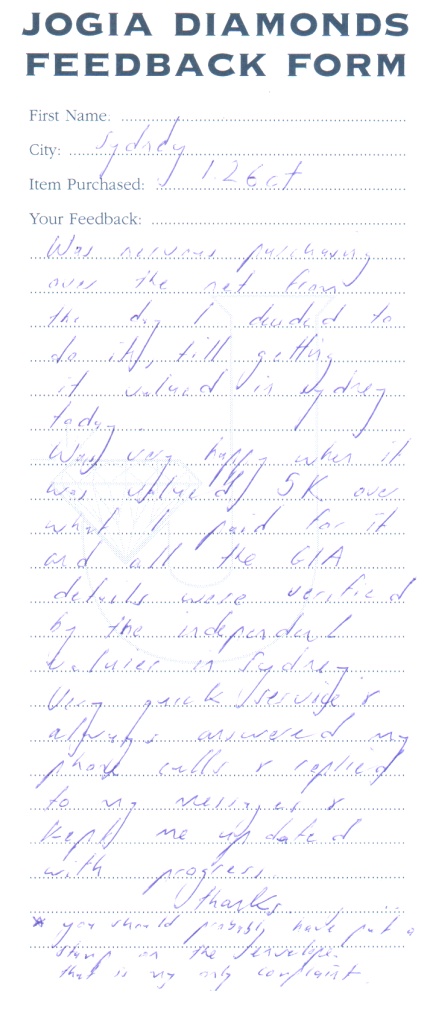 JOGIA DIAMONDS
FEEDBACK FORM
First Name:
City: Sydney
Item Purchased: 1.26ct
Your Feedback:
Was nervous purchasing
over the net from
the day I decided to
do it, till getting
it valued in Sydney
today.
Was very happy when it
was valued 5K over
what I paid for it
and all the GIA
details were verified
by the independent
valuer in Sydney.
Very quick service &
always answered my
phone calls & replied
to my messages &
kept me updated
with progress.
thanks.
* you should probably have put a
stamp on the envelope.
that is my only complaint